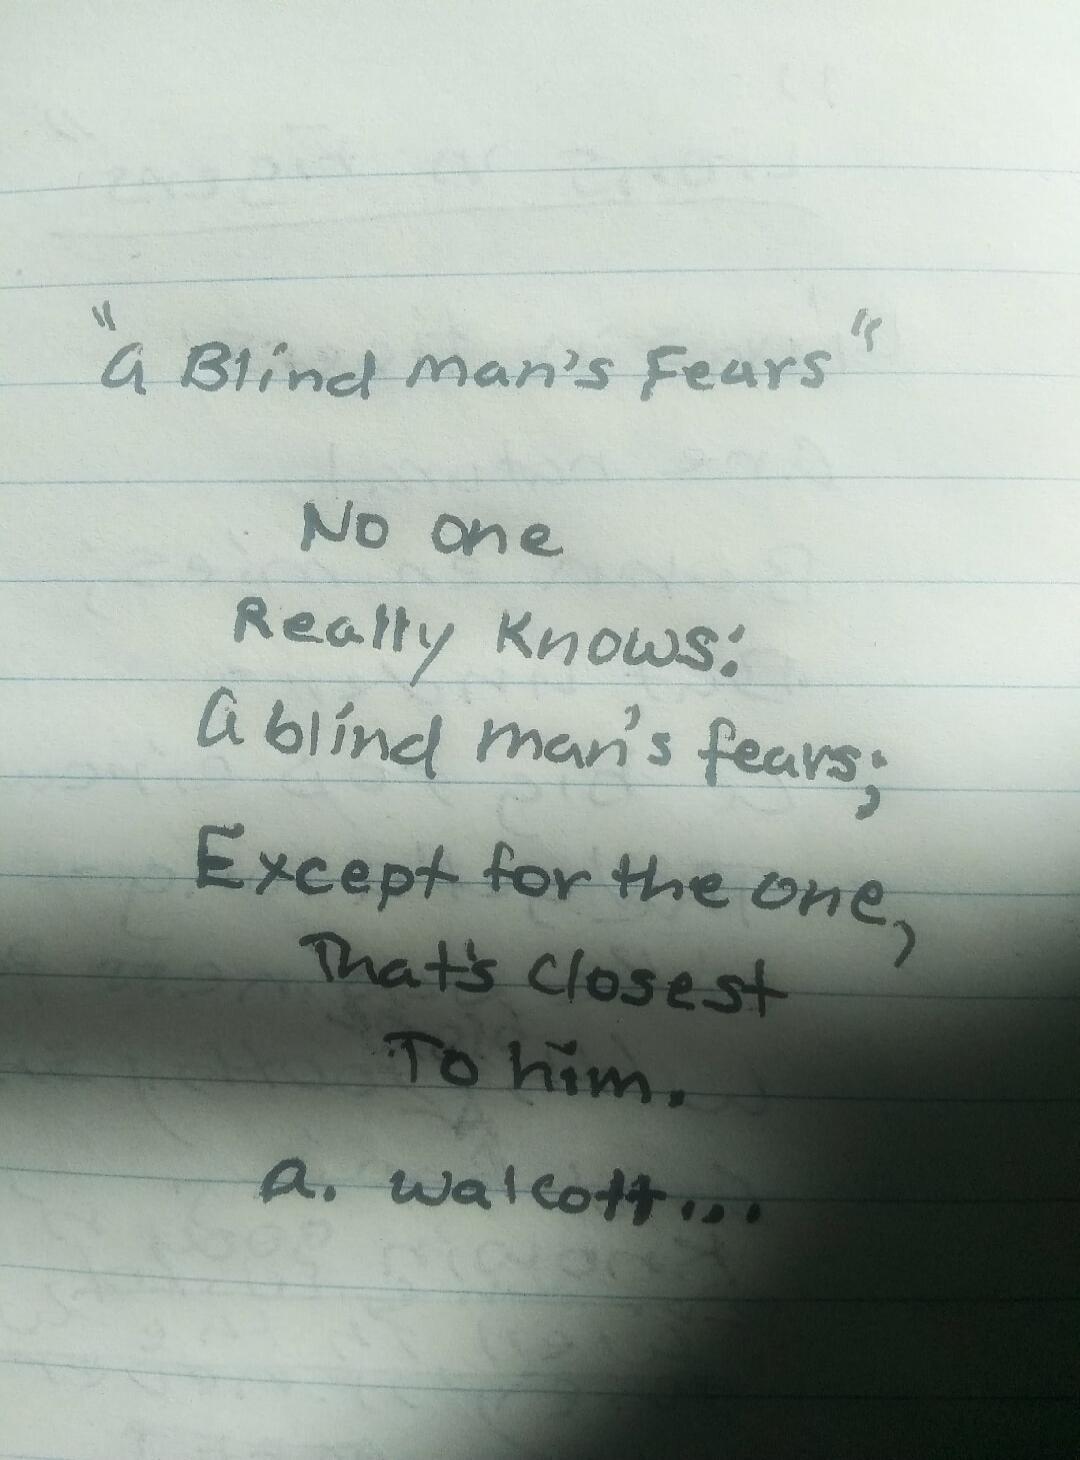 "A Blind man's Fears"
No one
Really Knows:
A blind man's fears;
Except for the one,
That's Closest
To him.
a. walcott...